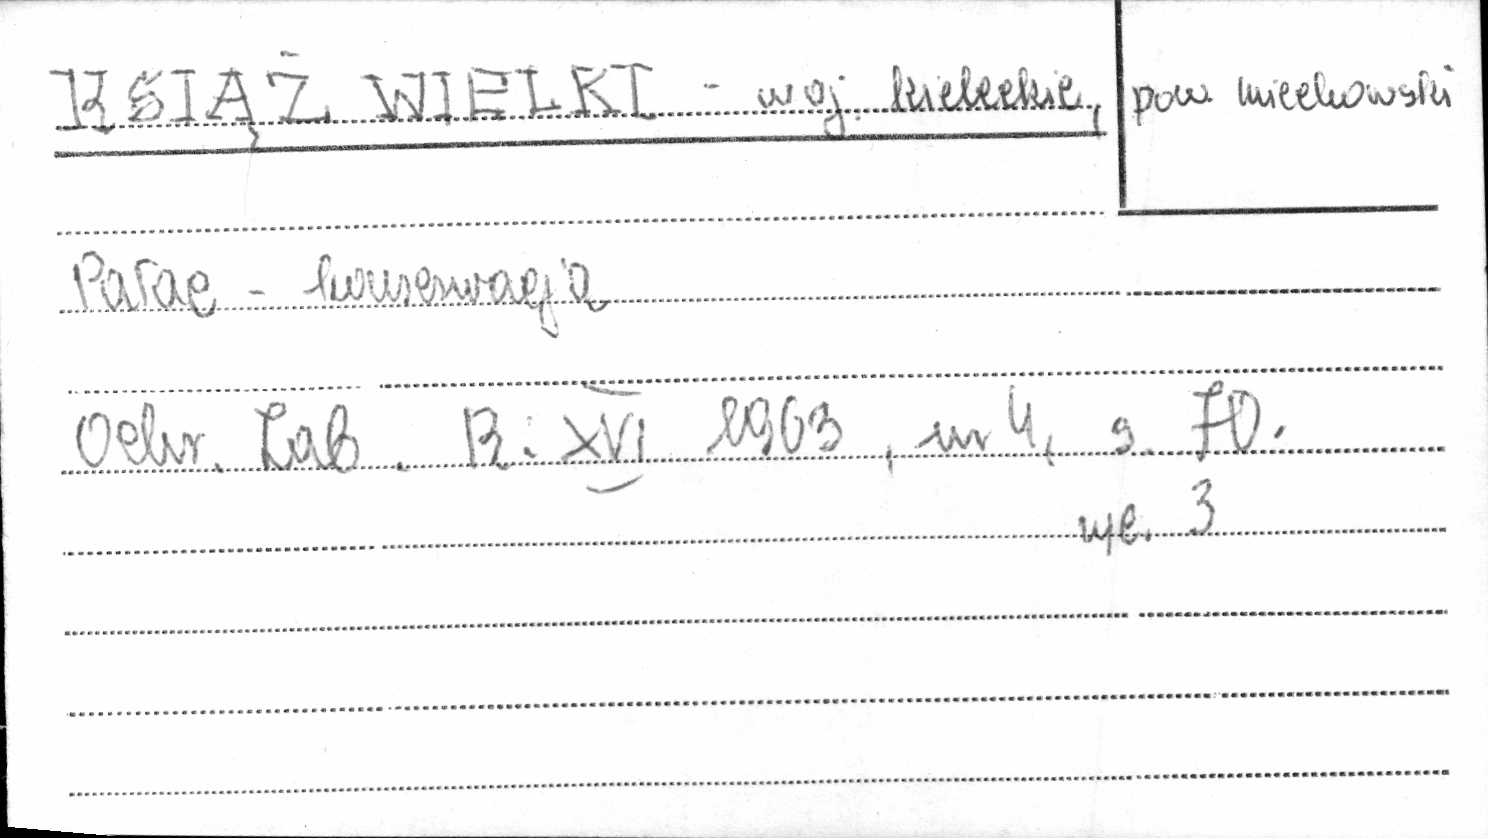 KSIĄŻ WIELKI - woj. kieleckie, pow. miechowski
Pałac - konserwacja
Ochr. Zab. R. XVI 1963, nr 4, s. 70.
ryc. 3